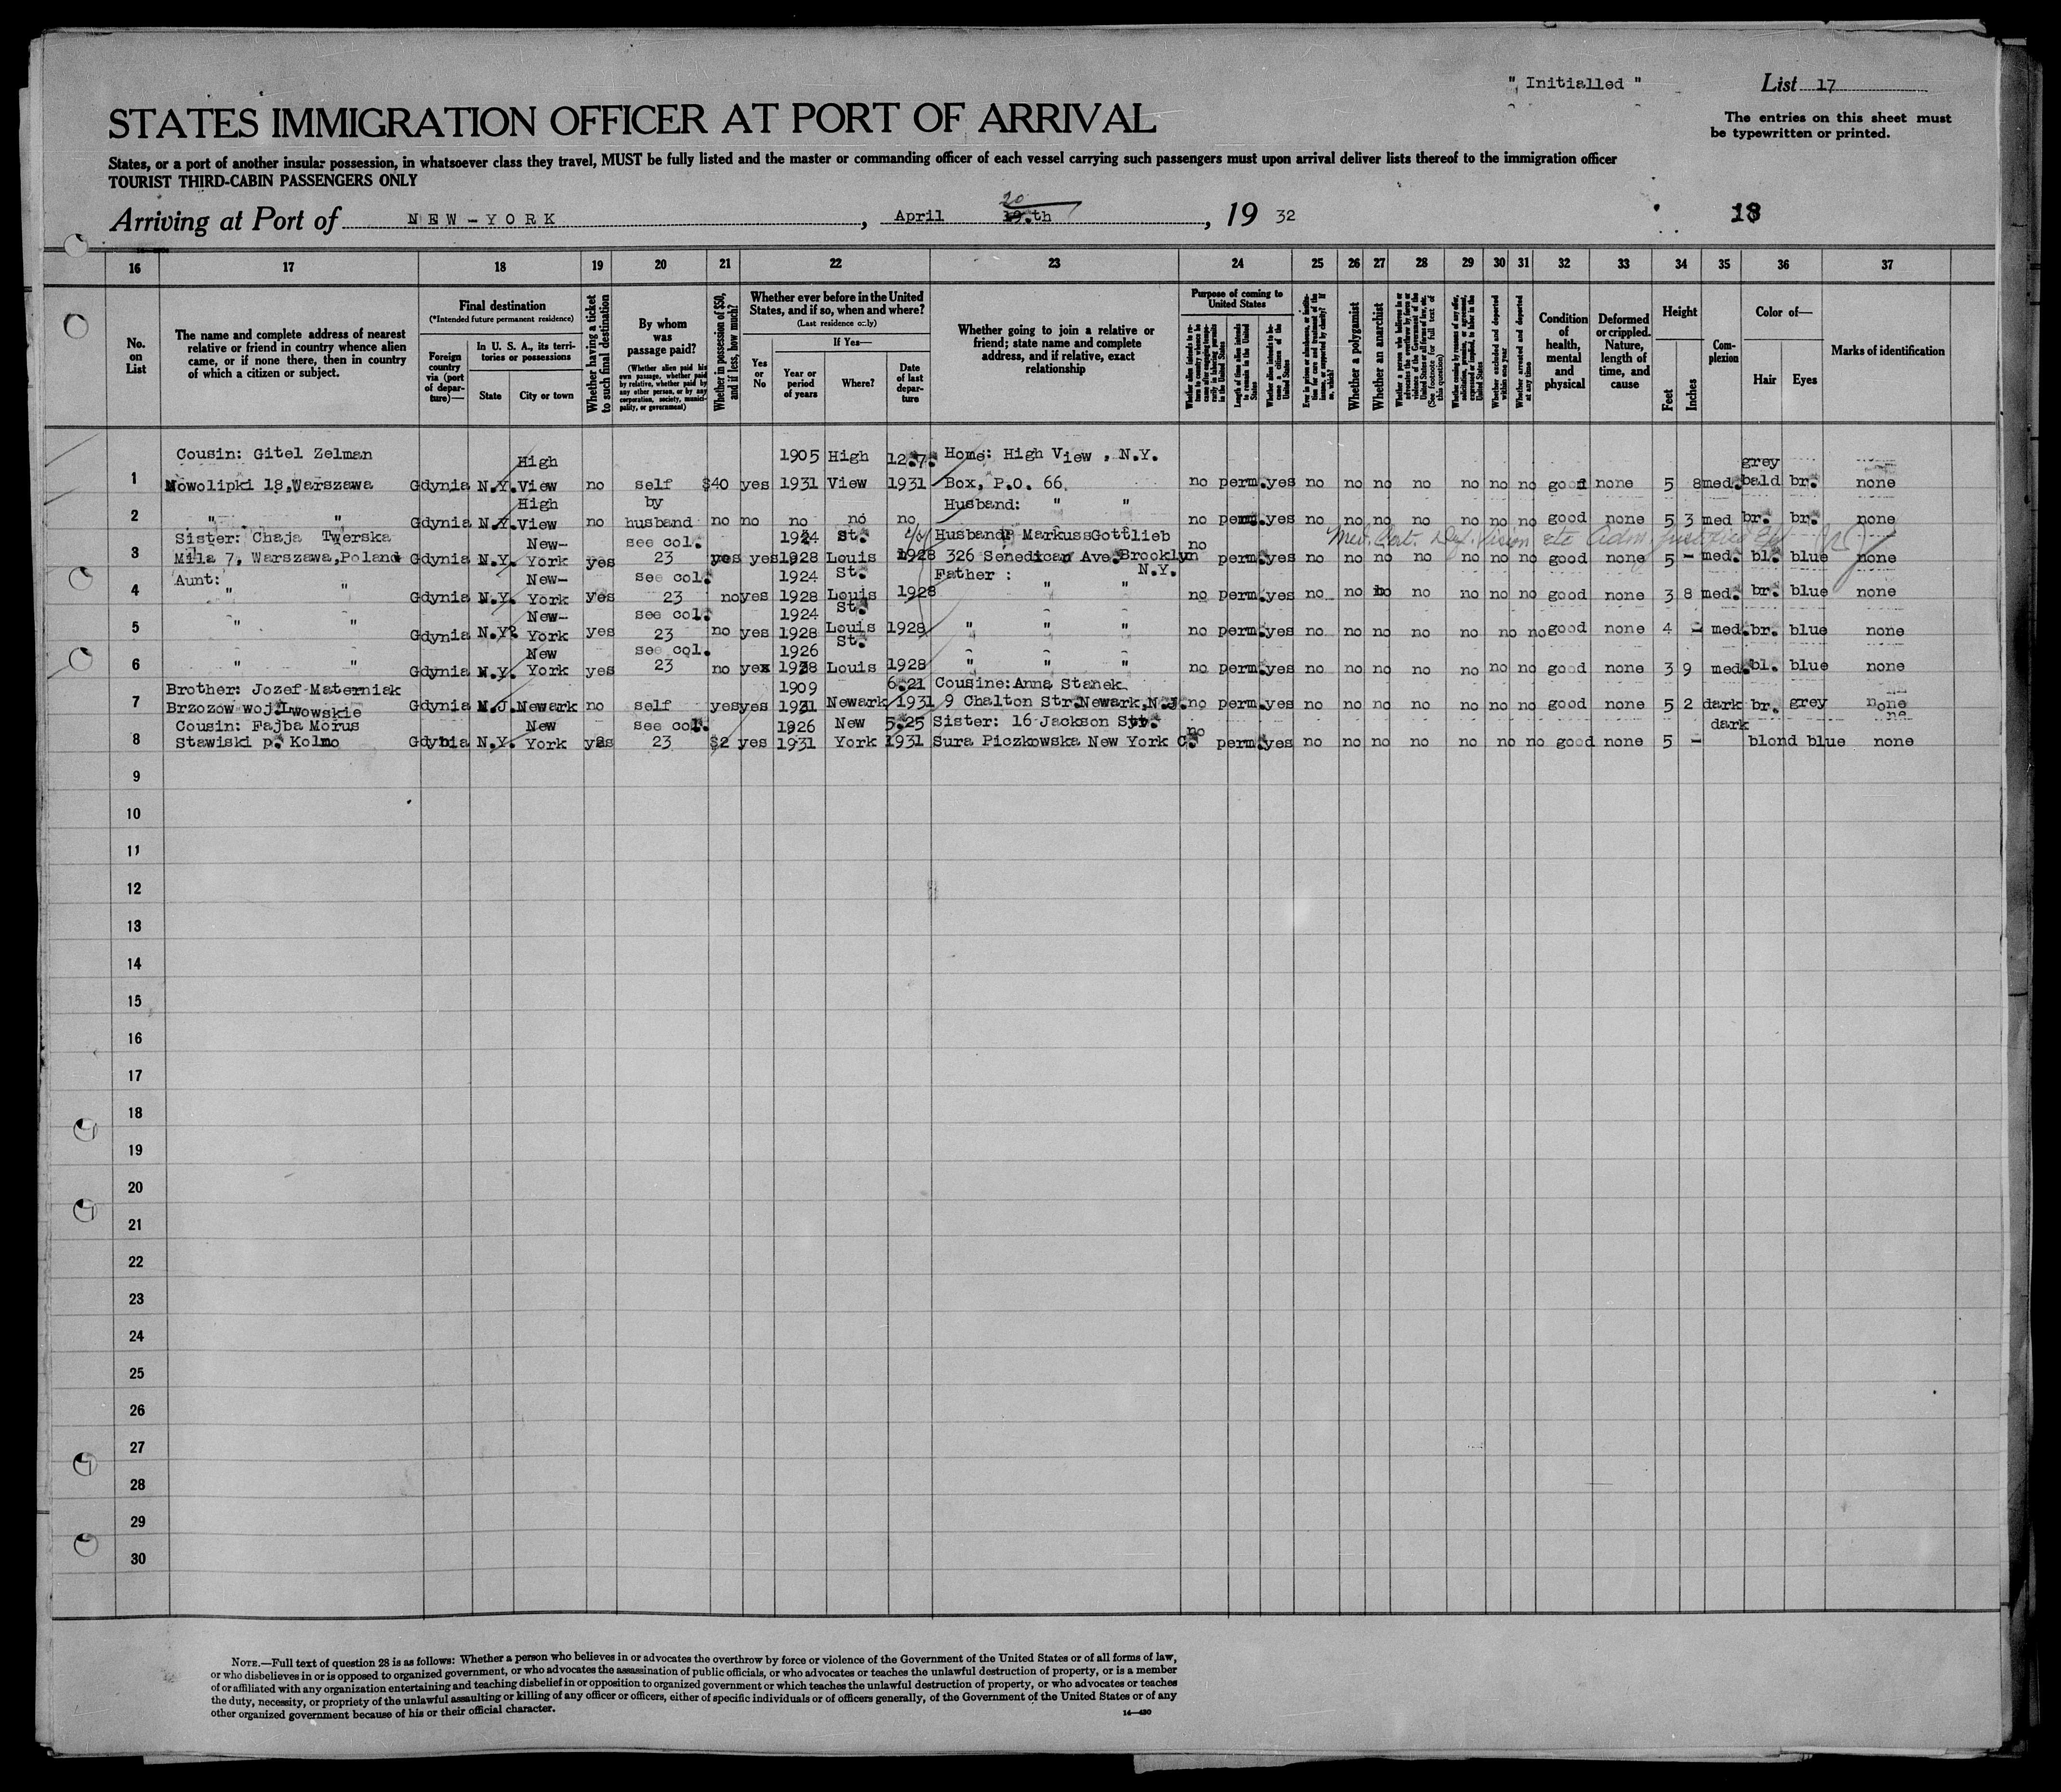 " Initialled "
List 17
STATES IMMIGRATION OFFICER AT PORT OF ARRIVAL
The entries on this sheet must
be typewritten or printed.
States, or a port of another insular possession, in whatsoever class they travel, MUST be fully listed and the master or commanding officer of each vessel carrying such passengers must upon arrival deliver lists thereof to the immigration officer
TOURIST THIRD-CABIN PASSENGERS ONLY
Arriving at Port of NEW-YORK, April 20 19.th, 19 32
18
16 17 18 19 20 21 22 23 24 25 26 27 28 29 30 31 32 33 34 35 36 37
No.
on
List
The name and complete address of nearest
relative or friend in country whence alien
came, or if none there, then in country
of which a citizen or subject.
Final destination
(*Intended future permanent residence)
Foreign
country
via (port
of depar-
ture)—
In U. S. A., its terri-
tories or possessions
State
City or town
Whether having a ticket
to such final destination
By whom
was
passage paid?
(Whether alien paid his
own passage, whether paid
by relative, whether paid by
any other person, or by any
corporation, society, munici-
pality, or government)
Whether in possession of $50,
and if less, how much?
Whether ever before in the United
States, and if so, when and where?
(Last residence only)
Yes
or
No
If Yes—
Year or
period
of years
Where?
Date
of last
depar-
ture
Whether going to join a relative or
friend; state name and complete
address, and if relative, exact
relationship
Purpose of coming to
United States
Whether a polygamist
Whether an anarchist
Condition
of
health,
mental
and
physical
Deformed
or crippled.
Nature,
length of
time, and
cause
Height
Feet
Inches
Com-
plexion
Color of—
Hair
Eyes
Marks of identification
Cousin: Gitel Zelman High 1905 High 12.7. Home: High View , N.Y. grey
1 Nowolipki 18,Warszawa Gdynia N.Y. View no self $40 yes 1931 View 1931 Box, P.O. 66 no perm. yes no no no no no no no good none 5 8 med. bald br. none
High by Husband: " "
2 " " Gdynia N.Y. View no husband no no no no no no perm. yes no no no no no no no good none 5 3 med br. br. none
Sister: Chaja Twerska New- see col. 1924 St. Husband: MarkussGottlieb Med. Cert. Def. vision
3 Mila 7, Warszawa,Poland Gdynia N.Y. York yes 23 yes yes 1928 Louis 1928 326 Senedican Ave.Brooklyn no perm. yes no no no no no no no good none 5 - med. bl. blue none
Aunt: New- see col. 1924 St. Father : N.Y.
4 " " Gdynia N.Y. York yes 23 no yes 1928 Louis 1928 " " no perm. yes no no no no no no no good none 3 8 med. br. blue none
" " New- see col. 1924 St.
5 Gdynia N.Y. York yes 23 no yes 1928 Louis 1928 " " " no perm. yes no no no no no no no good none 4 - med. br. blue none
New see col. 1926 St.
6 " " Gdynia N.Y. York yes 23 no yes 1928 Louis 1928 " " " no perm. yes no no no no no no no good none 3 9 med. bl. blue none
Brother: Jozef Materniak 1909 6.21 Cousine:Anna Stanek
7 Brzozow woj.Lwowskie Gdynia N.J. Newark no self yes yes 1931 Newark 1931 9 Chalton Str.Newark,N.J. no perm. yes no no no no no no no good none 5 2 dark br. grey none
Cousin: Fajba Morus New see col. 1926 New 5.25 Sister: 16 Jackson Str. dark
8 Stawiski p. Kolno Gdynia N.Y. York yes 23 $2 yes 1931 York 1931 Sura Piczkowska New York C. no perm. yes no no no no no no no good none 5 - blond blue none
9
10
11
12
13
14
15
16
17
18
19
20
21
22
23
24
25
26
27
28
29
30
NOTE.—Full text of question 28 is as follows: Whether a person who believes in or advocates the overthrow by force or violence of the Government of the United States or of all forms of law,
or who disbelieves in or is opposed to organized government, or who advocates the assassination of public officials, or who advocates or teaches the unlawful destruction of property, or is a member
of or affiliated with any organization entertaining and teaching disbelief in or opposition to organized government or which teaches the unlawful destruction of property, or who advocates or teaches
the duty, necessity, or propriety of the unlawful assaulting or killing of any officer or officers, either of specific individuals or of officers generally, of the Government of the United States or of any
other organized government because of his or their official character.
14—430